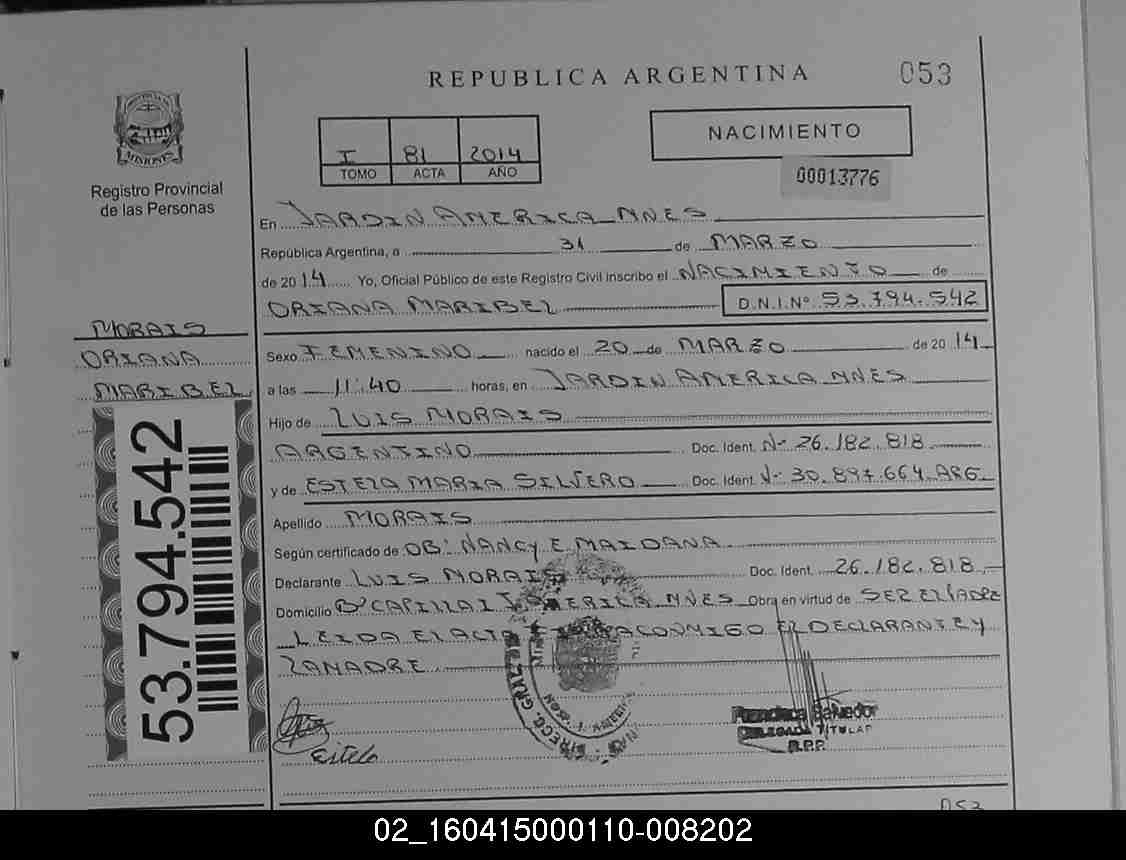 REPUBLICA ARGENTINA
053
MISIONES
Registro Provincial
de las Personas
I 81 2014
TOMO ACTA AÑO
NACIMIENTO
00013776
En JARDIN AMERICA MNES
República Argentina, a 31 de MARZO
de 2014 Yo, Oficial Público de este Registro Civil inscribo el NACIMIENTO de
ORIANA MARIBEL D.N.I.Nº 53.794.542
MORAIS
ORIANA
MARIBEL
53.794.542
Sexo FEMENINO nacido el 20 de MARZO de 2014
a las 11:40 horas, en JARDIN AMERICA MNES
Hijo de LUIS MORAIS
ARGENTINO Doc. Ident. Nº 26.182.818
y de ESTELA MARIA SILVERO Doc. Ident. Nº 30.897.664 ARG
Apellido MORAIS
Según certificado de OBª NANCY E MAIDANA
Declarante LUIS MORAIS Doc. Ident. 26.182.818
Domicilio Bº CAPILLA I MNES Obra en virtud de SER EL PADRE
LEIDA EL ACTA CONMIGO EL DECLARANTE Y
LA MADRE
Estela
Francisca Salvador
DELEGADA TITULAR
R.P.P.
053
02_160415000110-008202